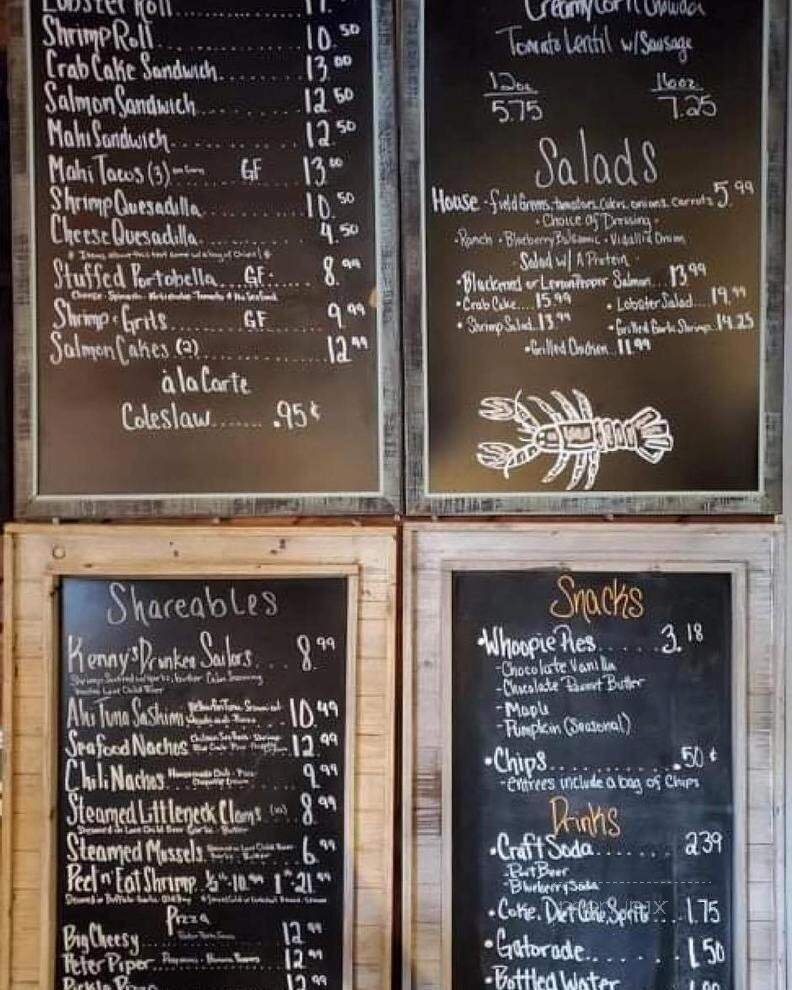 Lobster Roll
Shrimp Roll.......... 10.50
Crab Cake Sandwich....... 13.00
Salmon Sandwich......... 12.50
Mahi Sandwich.......... 12.50
Mahi Tacos (3) ..... GF ..... 13.00
Shrimp Quesadilla........ 10.50
Cheese Quesadilla........ 4.50
Stuffed Portobella...GF..... 8.99
Shrimp & Grits....... GF ..... 9.99
Salmon Cakes (2) ............ 12.99
à la Carte
Coleslaw....... .95¢
Creamy Corn Chowda
Tomato Lentil w/ Sausage
12oz 16oz
5.75 7.25
Salads
House - field Greens, tomatoes, Cukes, onions, carrots 5.99
- Choice of Dressing -
- Ranch - Blueberry Balsamic - Vidalia Onion
Salad w/ A Protein -
• Blackened or Lemon Pepper Salmon.... 13.99
• Crab Cake.... 15.99 • Lobster Salad.... 19.99
• Shrimp Salad. 13.99 • Grilled Garlic Shrimp.. 14.25
• Grilled Chicken. 11.99
Shareables
Kenny's Drunken Sailors... 8.99
Ahi Tuna Sashimi 10.49
Seafood Nachos 12.99
Chili Nachos 9.99
Steamed Littleneck Clams 8.99
Steamed in Lost Child Beer - Garlic - Butter
Steamed Mussels 6.99
Peel n' Eat Shrimp ½ lb - 10.99 1 lb - 21.99
Pizza
Big Cheesy........ 12.99
Peter Piper 12.99
Pickle Pizza 12.99
Snacks
• Whoopie Pies...... 3.18
- Chocolate Vanilla
- Chocolate Peanut Butter
- Maple
- Pumpkin (Seasonal)
• Chips............ .50¢
- entrees include a bag of Chips
Drinks
• Craft Soda........ 2.39
- Root Beer
- Blueberry Soda
• Coke, Diet Coke, Sprite.... 1.75
• Gatorade........ 1.50
• Bottled Water